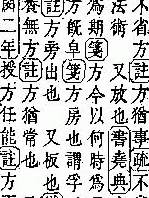 不省方註方猶事疏不
法術 又放也書堯典
為期箋方今以何時為
方旣阜箋方房也謂孚
註方旁出也 又板也
養無方註方猶常也
二年授方任能註方